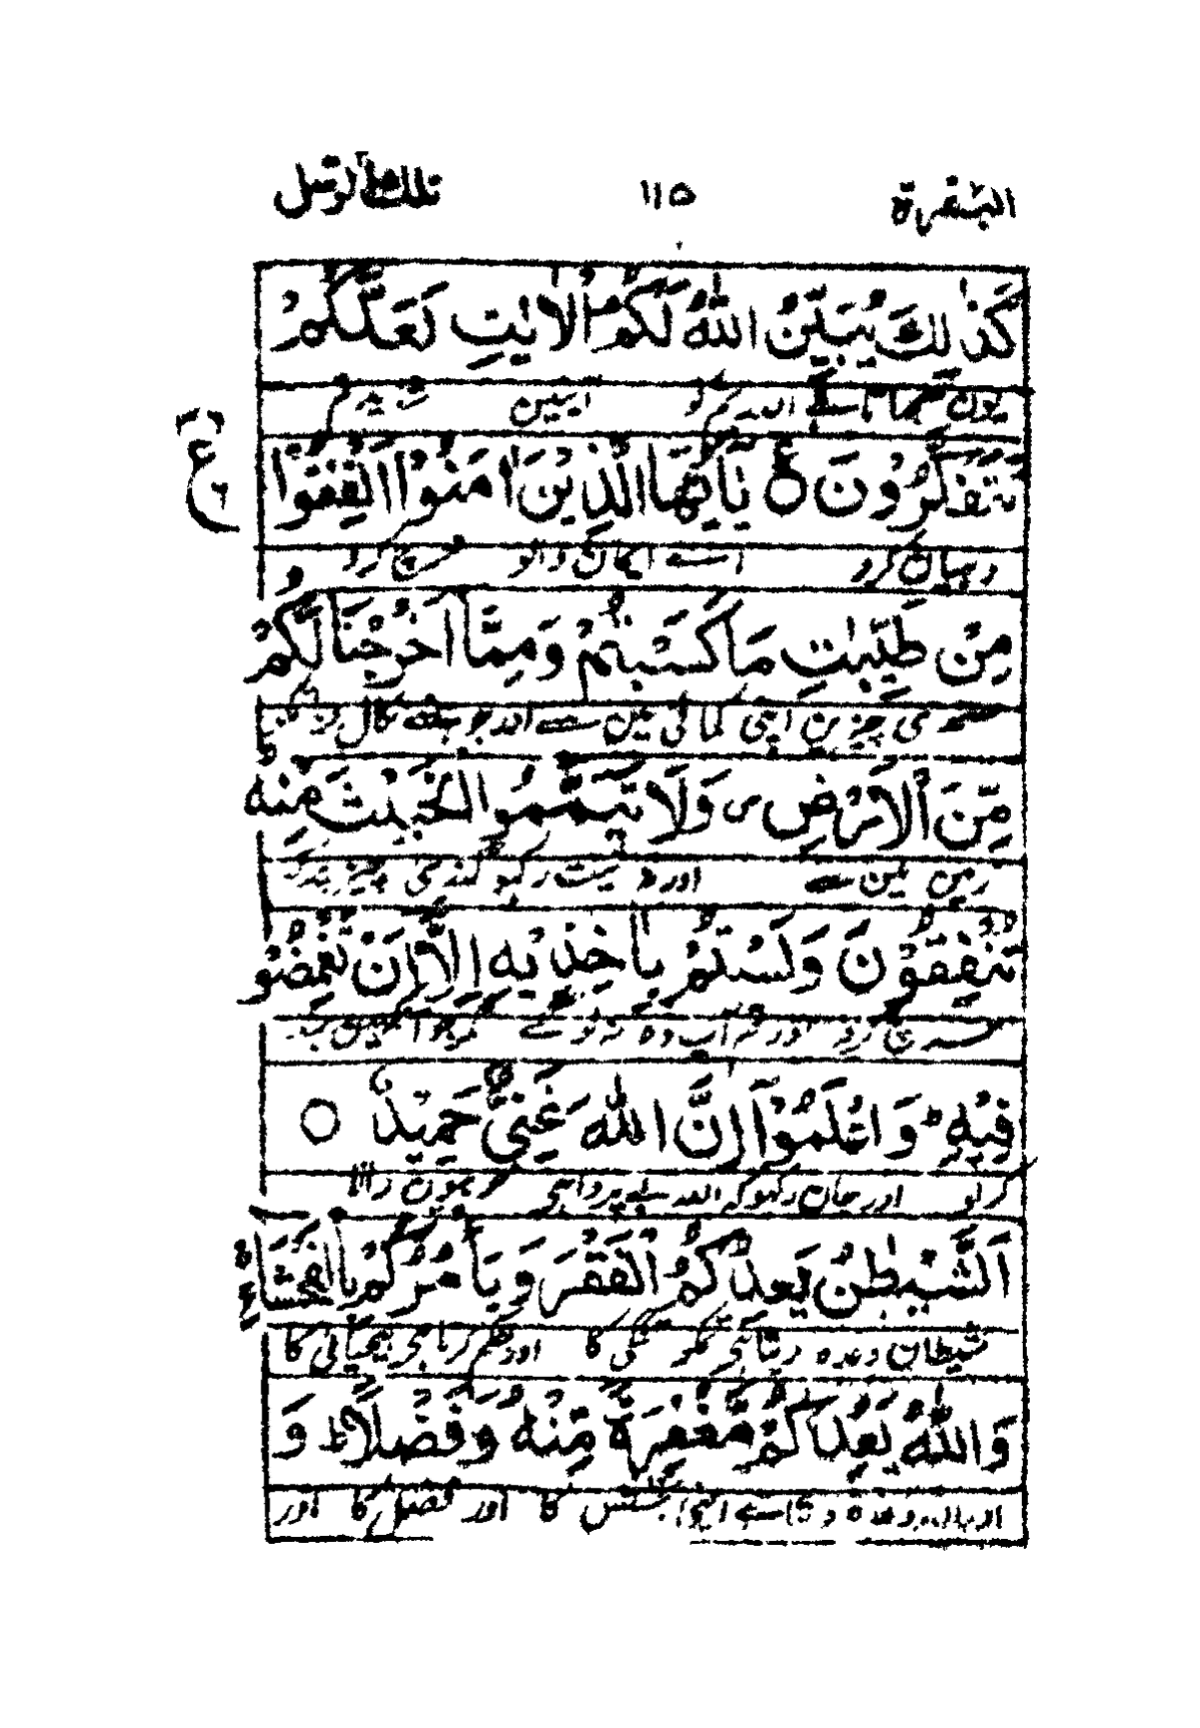 البقرة ۱۱۵ تلك الرسل
كَذٰلِكَ يُبَيِّنُ اللّٰهُ لَكُمُ الْاٰيٰتِ لَعَلَّكُمْ
یوں سمجھاتا ہے اللہ تم کو آیتیں شاید تم
تَتَفَكَّرُوْنَ ○ يٰۤاَيُّهَا الَّذِيْنَ اٰمَنُوْۤا اَنْفِقُوْا
ع
دھیان کرو اے ایمان والو خرچ کرو
مِنْ طَيِّبٰتِ مَا كَسَبْتُمْ وَمِمَّاۤ اَخْرَجْنَا لَكُمْ
ستھری چیزیں اپنی کمائی میں سے اور جو ہمنے نکال دیا تمکو
مِّنَ الْاَرْضِ ص وَلَا تَيَمَّمُوا الْخَبِيْثَ مِنْهُ
زمین میں سے اور نیت نہ رکھو گندی چیز پر کہ
تُنْفِقُوْنَ وَلَسْتُمْ بِاٰخِذِيْهِ اِلَّاۤ اَنْ تُغْمِضُوْا
خرچ کرو اور تم آپ وہ نہ لوگے مگر جو آنکھیں
فِيْهِ ط وَاعْلَمُوْۤا اَنَّ اللّٰهَ غَنِيٌّ حَمِيْدٌ ○
کر لو اور جان رکھو کہ اللہ بے پروا ہی خوبیوں والا
اَلشَّيْطٰنُ يَعِدُكُمُ الْفَقْرَ وَيَاْمُرُكُمْ بِالْفَحْشَآءِ
شیطان وعدہ دیتا ہی تمکو تنگی کا اور حکم کرتا ہی بیحیائی کا
وَاللّٰهُ يَعِدُكُمْ مَّغْفِرَةً مِّنْهُ وَفَضْلًا ط وَ
اور اللہ وعدہ دیتا ہے اپنی بخشش کا اور فضل کا اور